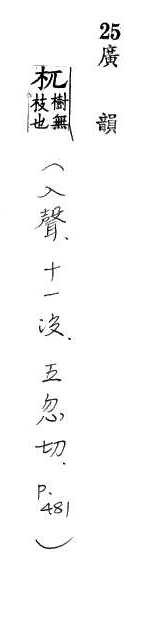 25廣韻
杌樹無枝也(入聲、十一沒、五忽切. P.481)